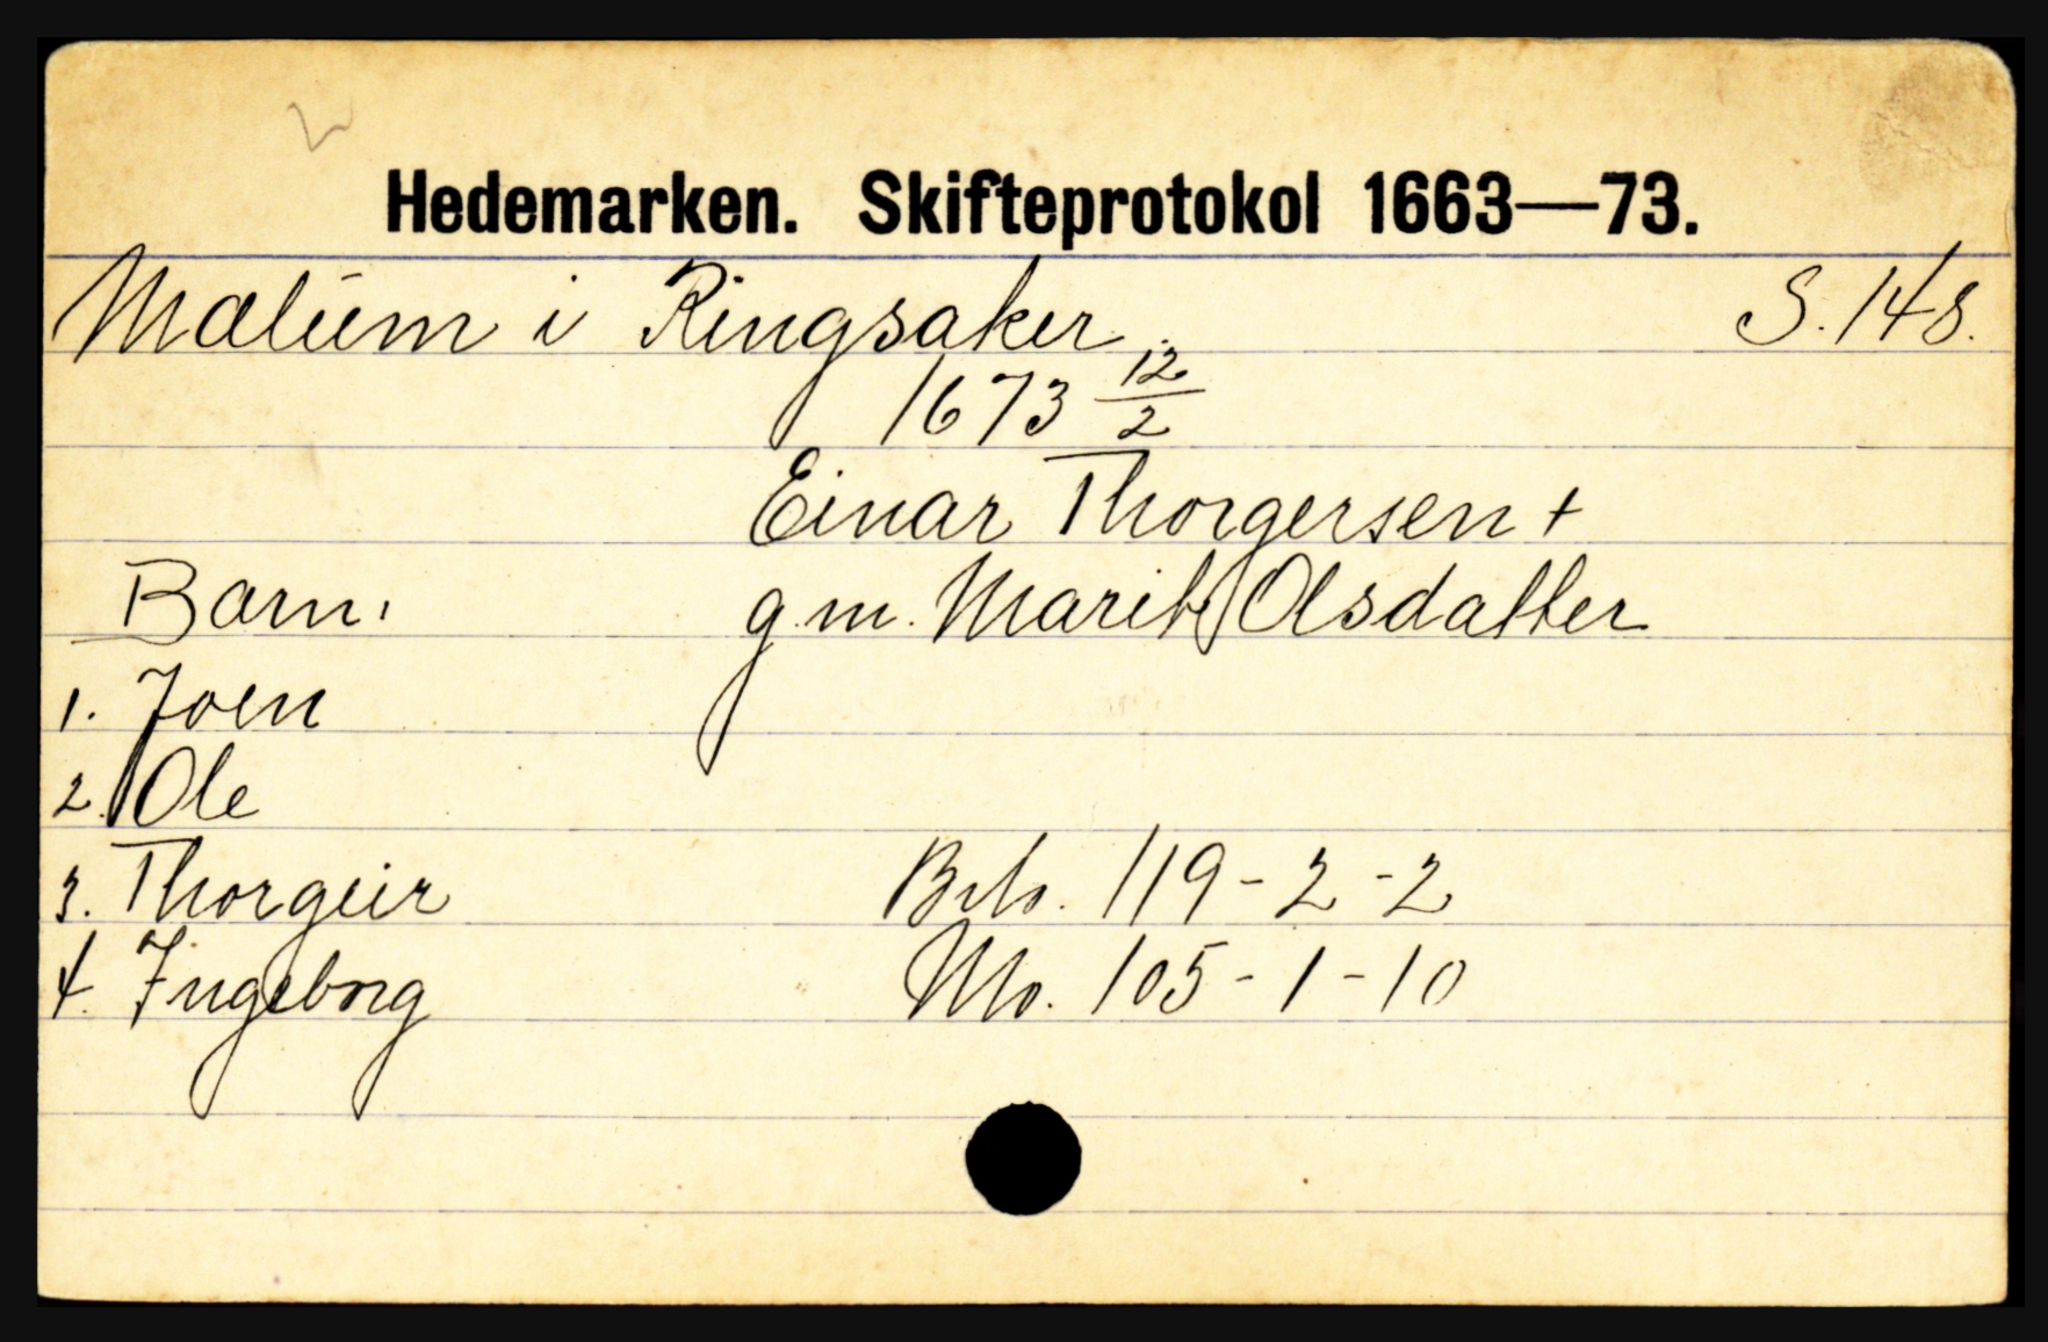 Hedemarken. Skifteprotokol 1663—73.
Mælum i Ringsaker. S. 148.
1673 12/2
Einar Thorgersen +
Barn: g.m. Marit Olsdatter
1. Joen
2. Ole
3. Thorgeir Brto. 119-2-2
4. Ingeborg Nto. 105-1-10